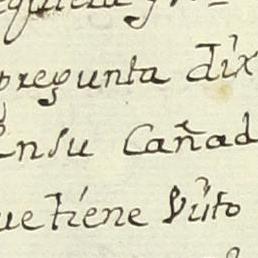 pregunta dix
Ensu Cañad
ue tiene Visto